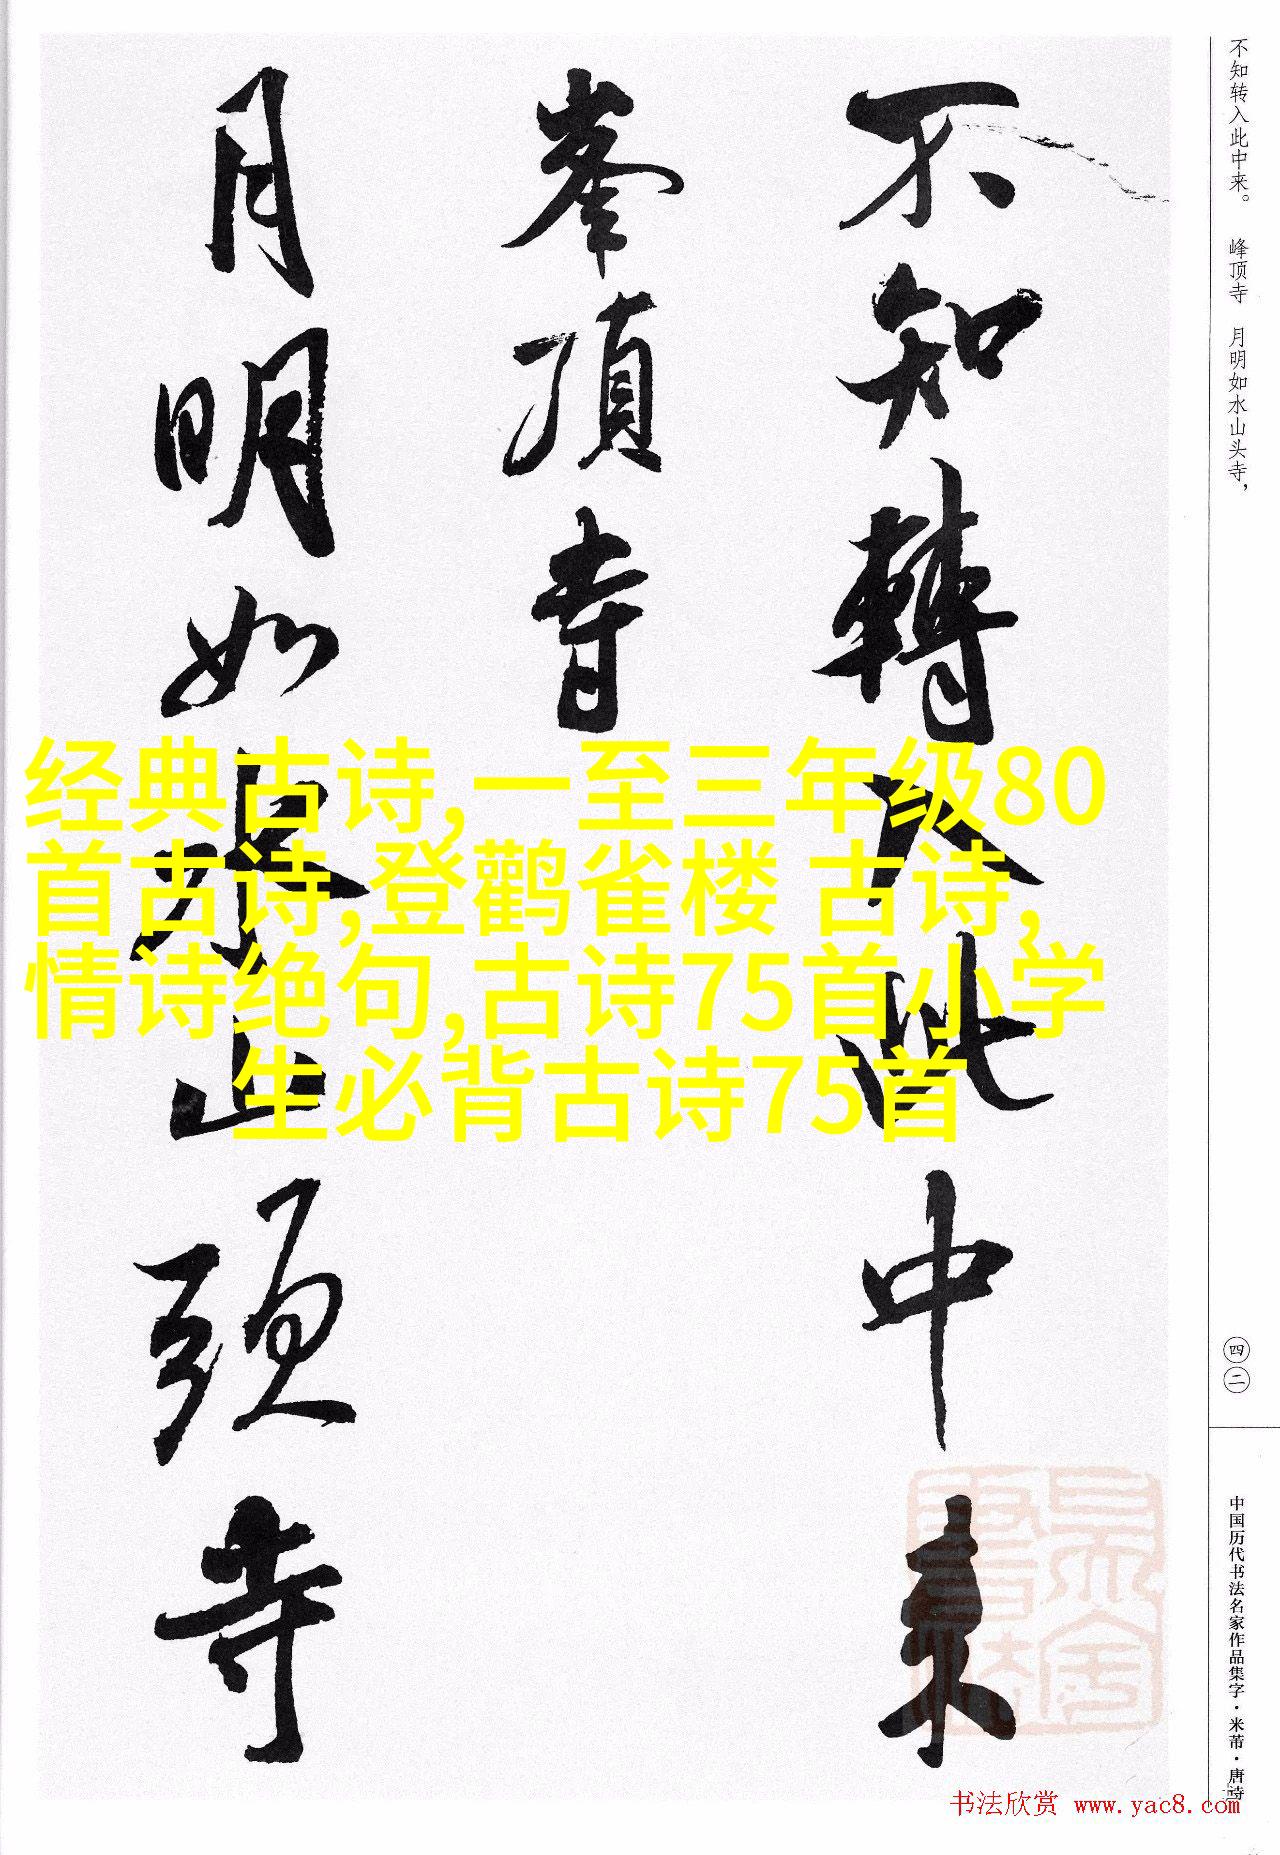 不知转入此中来。 峰顶寺 月明如水山头寺，
四二
中国历代书法名家作品集字·米芾·唐诗
不知轉入此中来
峯頂寺
月明如水山頭寺
经典古诗,一至三年级80
首古诗,登鹳雀楼 古诗,
情诗绝句,古诗75首小学
生必背古诗75首
书法欣赏 www.yac8.com